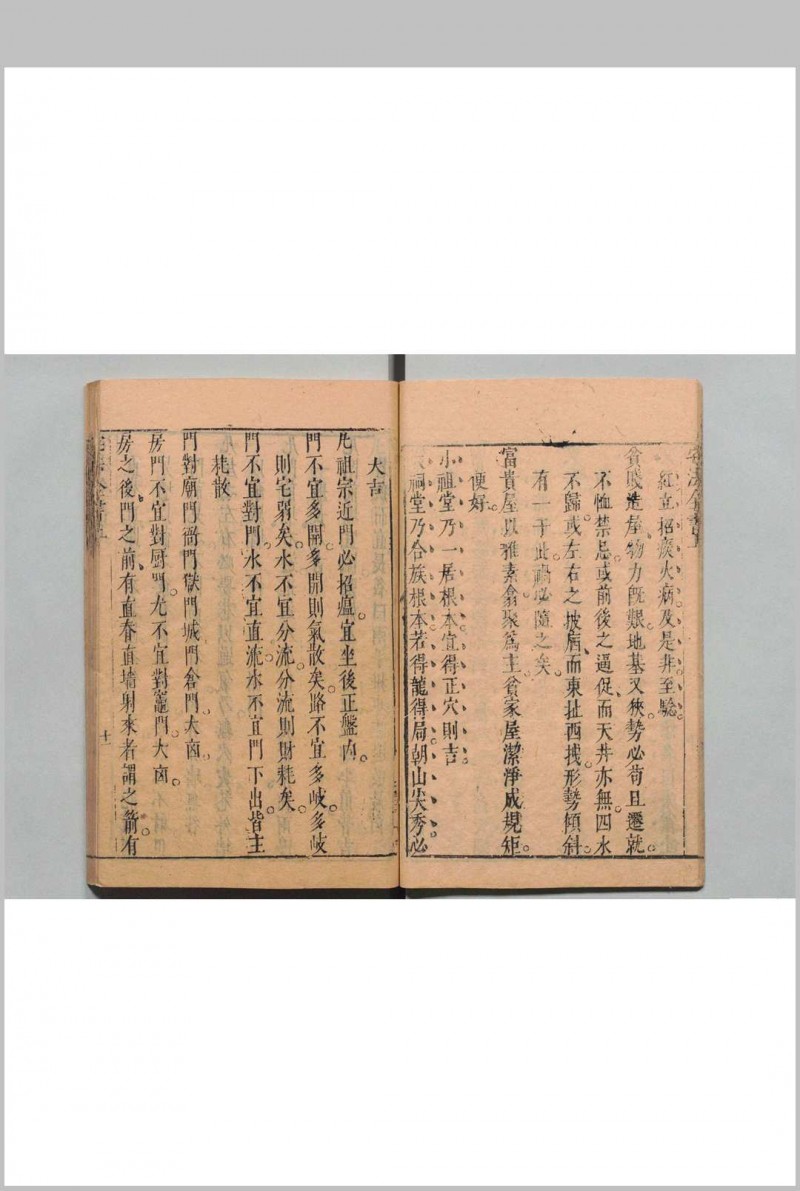 紅立招瘓火病及是非至驗
貧賤造屋物力既艱地基又狹勢必苟且遷就
不恤禁忌或前後之逼促而天井亦無四水
不歸或左右之披厝而東扯西拽形勢傾斜
有一于此禍必隨之矣
富貴屋以雅素翕聚爲主貧家屋潔淨成規矩
便好
小祖堂乃一居根本宜得正穴則吉
祠堂乃合族根本若得龍得局朝山尖秀必
大吉
凡祖宗近門必招瘟宜坐後正盤內
門不宜多開多開則氣散矣路不宜多岐多岐
則宅弱矣水不宜分流分流則財耗矣
門不宜對門水不宜直流水不宜門下出皆主
耗散
門對廟門衙門獄門城門倉門大凶
房門不宜對厨門尤不宜對竈門大凶
房之後門之前有直脊直墻射來者謂之箭有
十一